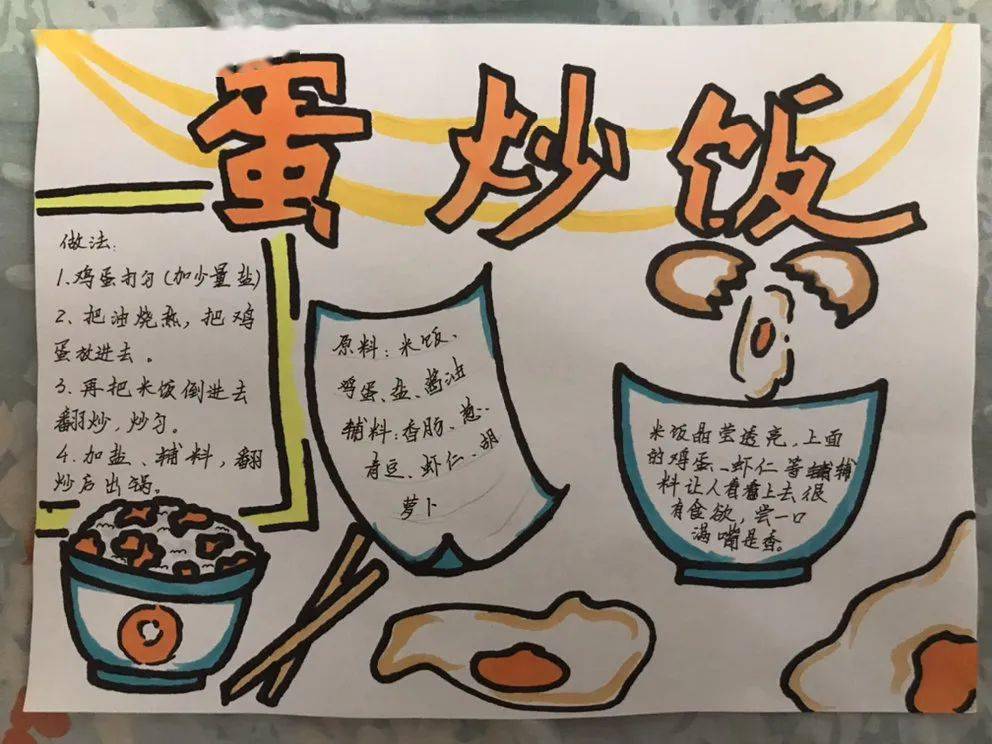 蛋炒饭
做法:
1.鸡蛋打匀(加少量盐)
2、把油烧热,把鸡
蛋放进去。
3、再把米饭倒进去
翻炒,炒匀。
4.加盐、辅料,翻
炒后出锅。
原料:米饭、
鸡蛋、盐、酱油
辅料:香肠、葱、
青豆、虾仁、胡
萝卜
米饭晶莹透亮,上面
的鸡蛋、虾仁等辅
料让人看着上去很
有食欲,尝一口
满嘴是香。